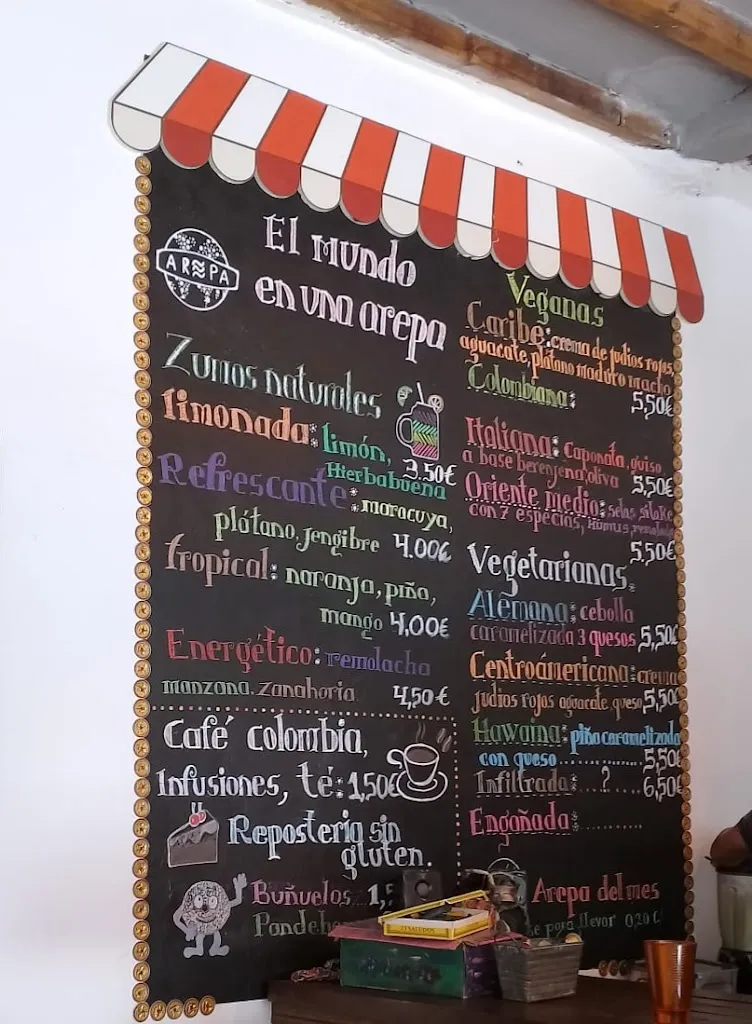 AREPA
El Mundo
en una arepa
Zumos naturales
limonada: limón,
Hierbabuena
3,50€
Refrescante: maracuya,
plátano, jengibre 4.00€
tropical: naranja, piña,
mango 4,00€
Energético: remolacha
manzana. zanahoria 4,50€
Café colombia,
Infusiones, té: 1,50€
Repostería sin
gluten.
Buñuelos 1,
Veganas
Caribe: crema de judios rojas,
aguacate, plátano maduro macho
5,50€
Colombiana:
Italiana: Caponata, guiso
a base berenjena, oliva 5,50€
Oriente medio:
con 7 especios, Humus,
5,50€
Vegetarianas.
Alemana: cebolla
caramelizada 3 quesos 5,50€
Centroámericana: crema
judios rojos aguacate, queso 5,50
Hawaina: piña caramelizada
con queso .......... 5,50€
Infiltrada: ..?.. 6,50€
Engañada: ........
Arepa del mes
para llevar 0,20€